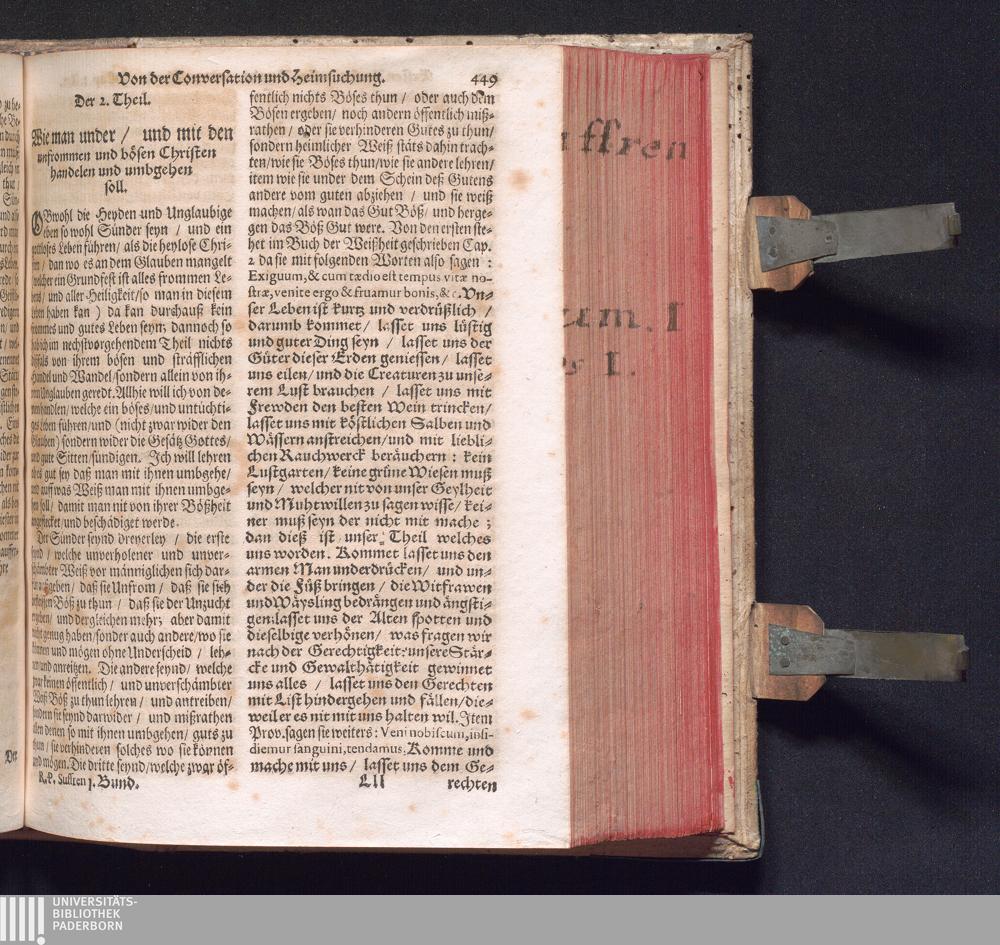 Von der Conversation und Heimsuchung. 449
Der 2. Theil.
Wie man under / und mit den
unfrommen und bösen Christen
handelen und umbgehen
soll.
OBwohl die Heyden und Unglaubige
eben so wohl Sünder seyn / und ein
Leben führen / als die heylose Chri-
/ dan wo es an dem Glauben mangelt
welcher ein Grundfest ist alles frommen Le-
/ und aller Heiligkeit / so man in diesem
haben kan ) da kan durchauß kein
frommes und gutes Leben seyn; dannoch so
hab ich im nechstvorgehendem Theil nichts
von ihrem bösen und sträfflichen
Handel und Wandel / sondern allein von ih-
Unglauben geredt. Allhie will ich von de-
handlen / welche ein böses / und untüchti-
ges Leben führen / und (nicht zwar wider den
Glauben) sondern wider die Gesätz Gottes /
und gute Sitten / sündigen. Ich will lehren
gut sey daß man mit ihnen umbgehe /
und auff was Weiß man mit ihnen umbge-
soll / damit man nit von ihrer Bößheit
angestecket / und beschädiget werde.
Der Sünder seynd dreyerley / die erste
seynd / welche unverholener und unver-
schämbter Weiß vor männiglichen sich dar-
geben / daß sie Unfrom / daß sie sich
Böß zu thun / daß sie der Unzucht
/ und dergleichen mehr; aber damit
nicht genug haben / sonder auch andere / wo sie
können und mögen ohne Underscheid / leh-
und anreitzen. Die andere seynd / welche
zwar keinen öffentlich / und unverschämbter
Weiß Böß zu thun lehren / und antreiben /
sondern sie seynd darwider / und mißrathen
denen so mit ihnen umbgehen / guts zu
thun / sie verhinderen solches wo sie können
und mögen. Die dritte seynd / welche zwar öf-
R. P. Suffren 1. Bund.
fentlich nichts Böses thun / oder auch dem
Bösen ergeben / noch andern öffentlich miß-
rathen / oder sie verhinderen Gutes zu thun /
sondern heimlicher Weiß stäts dahin trach-
ten / wie sie Böses thun / wie sie andere lehren /
item wie sie under dem Schein deß Gutens
andere vom guten abziehen / und sie weiß
machen / als wan das Gut Böß / und herge-
gen das Böß Gut were. Von den ersten ste-
het im Buch der Weißheit geschrieben Cap.
2 da sie mit folgenden Worten also sagen :
Exiguum, & cum tædio est tempus vitæ no-
stræ, venite ergo & fruamur bonis, &c. Un-
ser Leben ist kurtz und verdrüßlich /
darumb kommet / lasset uns lüstig
und guter Ding seyn / lasset uns der
Güter dieser Erden geniessen / lasset
uns eilen / und die Creaturen zu unse-
rem Lust brauchen / lasset uns mit
Frewden den besten Wein trincken /
lasset uns mit köstlichen Salben und
Wässern anstreichen / und mit liebli-
chen Rauchwerck beräuchern : kein
Lustgarten / keine grüne Wiesen muß
seyn / welcher nit von unser Geylheit
und Muhtwillen zu sagen wisse / kei-
ner muß seyn der nicht mit mache ;
dan dieß ist unser Theil welches
uns worden. Kommet lasset uns den
armen Man underdrücken / und un-
der die Füß bringen / die Witfrawen
und Wäysling bedrängen und ängsti-
gen: lasset uns der Alten spotten und
dieselbige verhönen / was fragen wir
nach der Gerechtigkeit: unsere Stär-
cke und Gewalthätigkeit gewinnet
uns alles / lasset uns den Gerechten
mit List hindergehen und fällen / die-
weil er es nit mit uns halten wil. Item
Prov. sagen sie weiters : Veni nobiscum, insi-
diemur sanguini, tendamus. Komme und
mache mit uns / lasset uns dem Ge-
Lll rechten
uffren
um. I
s I.
UNIVERSITÄTS-
BIBLIOTHEK
PADERBORN